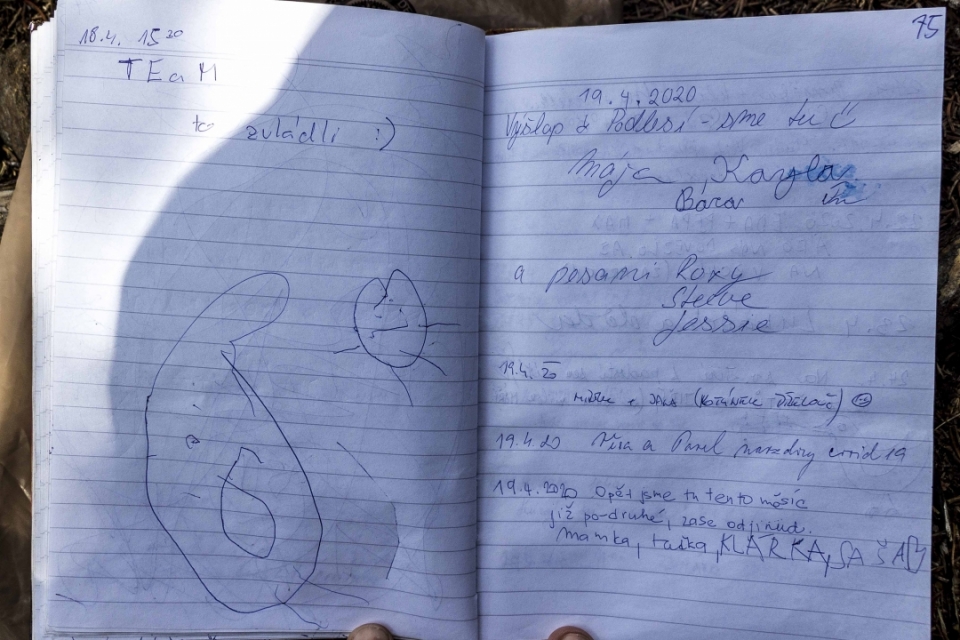 18.4. 15³⁰
TEaM
to zvládli :)
75
19.4.2020
Výšlap z Podlesí - sme tu
Mája Kayla
Bára
a pesani Roxy
Steeve
Jessie
19.4. 20
+ JANA
19.4.20 Věra a Pavel navzdory covid 19
19.4.2020 Opět jsme tu tento měsíc
již po-druhé, zase odjinud.
Mamka, taťka, KLÁRKA, SAŠA